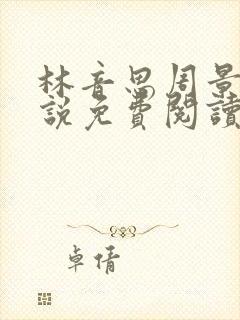 林音思周景
說免費閱讀
卓倩